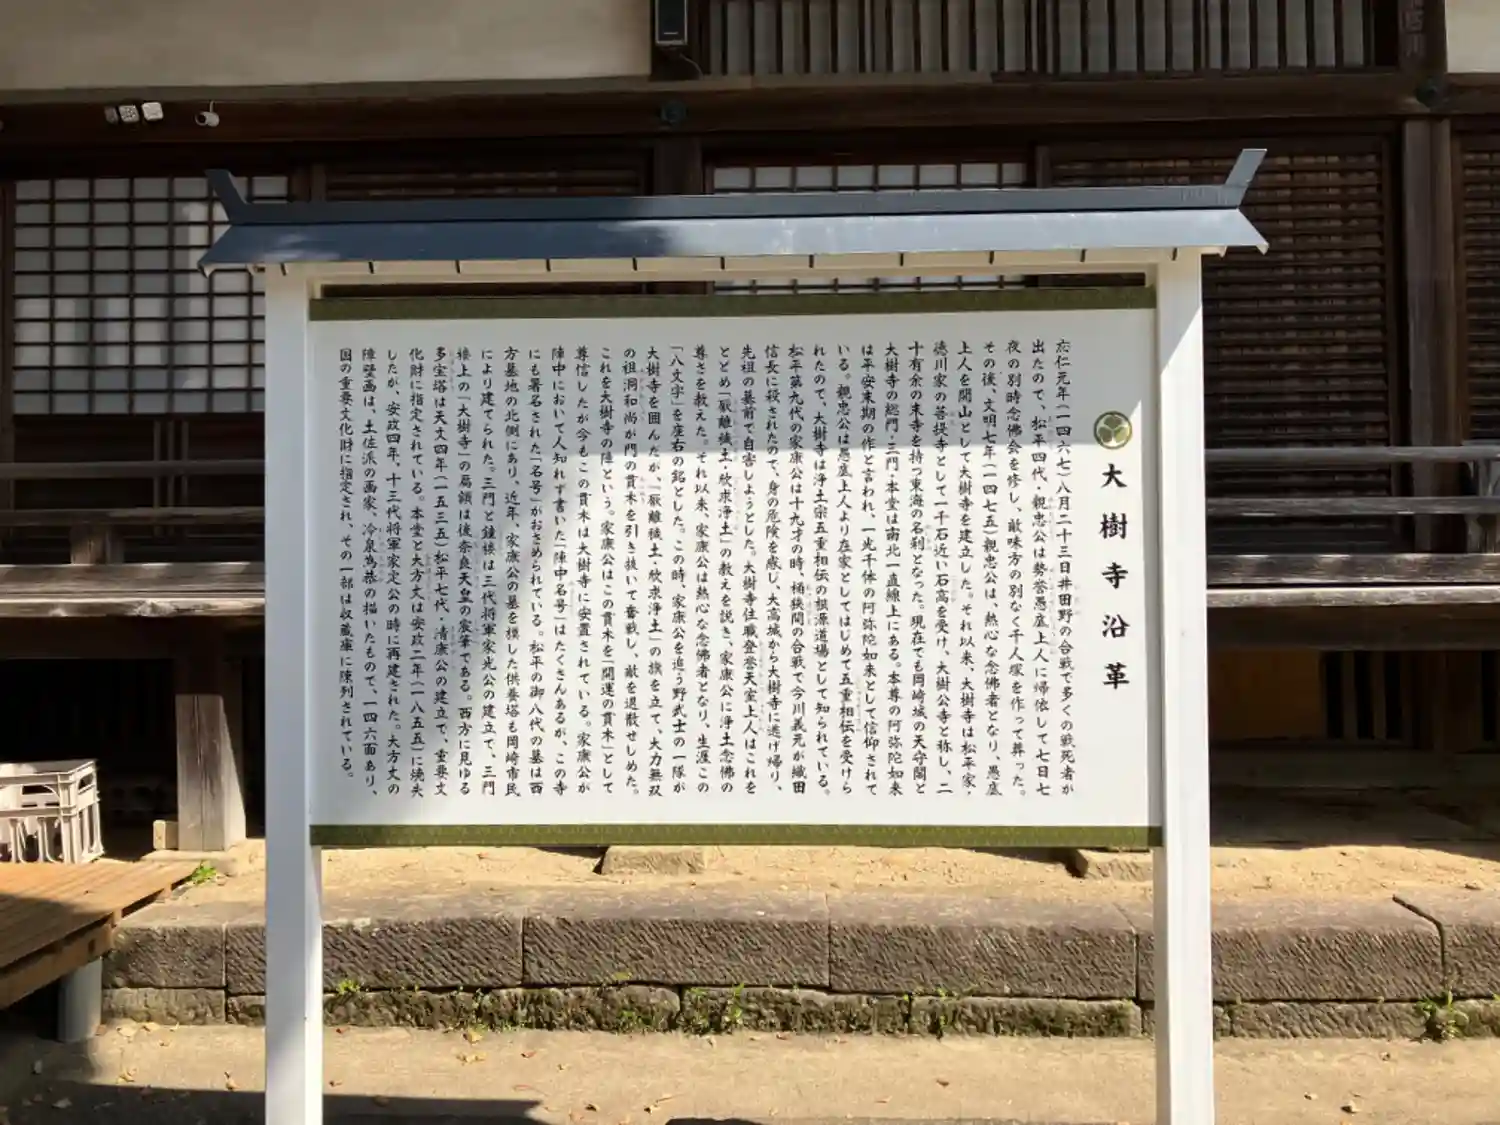 大樹寺沿革
応仁元年(一四六七)八月二十三日井田野の合戦で多くの戦死者が
出たので、松平四代・親忠公は勢誉愚底上人に帰依して七日七
夜の別時念佛会を修し、敵味方の別なく千人塚を作って葬った。
その後、文明七年(一四七五)親忠公は、熱心な念佛者となり、愚底
上人を開山として大樹寺を建立した。それ以来、大樹寺は松平家・
徳川家の菩提寺として一千石近い石高を受け、大樹公寺と称し、二
十有余の末寺を持つ東海の名刹となった。現在でも岡崎城の天守閣と
大樹寺の総門・三門・本堂は南北一直線上にある。本尊の阿弥陀如来
は平安末期の作と言われ、一光千体の阿弥陀如来として信仰されて
いる。親忠公は愚底上人より在家としてはじめて五重相伝を受けら
れたので、大樹寺は浄土宗五重相伝の根源道場として知られている。
松平第九代の家康公は十九才の時、桶狭間の合戦で今川義元が織田
信長に殺されたので、身の危険を感じ、大高城から大樹寺に逃げ帰り、
先祖の墓前で自害しようとした。大樹寺住職登誉天室上人はこれを
とどめ「厭離穢土・欣求浄土」の教えを説き、家康公に浄土念佛の
尊さを教えた。それ以来、家康公は熱心な念佛者となり、生涯この
「八文字」を座右の銘とした。この時、家康公を追う野武士の一隊が
大樹寺を囲んだが、「厭離穢土・欣求浄土」の旗を立て、大力無双
の祖洞和尚が門の貫木を引き抜いて奮戦し、敵を退散せしめた。
これを大樹寺の陣という。家康公はこの貫木を「開運の貫木」として
尊信したが今もこの貫木は大樹寺に安置されている。家康公が
陣中において人知れず書いた「陣中名号」はたくさんあるが、この寺
にも署名された「名号」がおさめられている。松平の御八代の墓は西
方墓地の北側にあり、近年、家康公の墓を模した供養塔も岡崎市民
により建てられた。三門と鐘楼は三代将軍家光公の建立で、三門
楼上の「大樹寺」の扁額は後奈良天皇の宸筆である。西方に見ゆる
多宝塔は天文四年(一五三五)松平七代・清康公の建立で、重要文
化財に指定されている。本堂と大方丈は安政二年(一八五五)に焼失
したが、安政四年、十三代将軍家定公の時に再建された。大方丈の
障壁画は、土佐派の画家、冷泉為恭の描いたもので、一四六面あり、
国の重要文化財に指定され、その一部は収蔵庫に陳列されている。